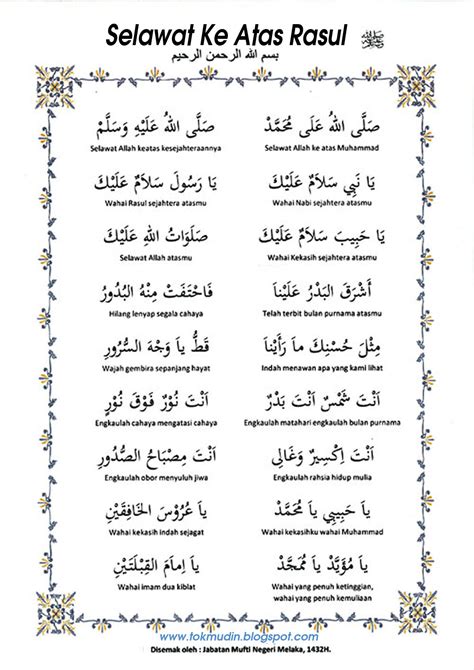 Selawat Ke Atas Rasul ﷺ
بسم الله الرحمن الرحيم
صَلَّى اللهُ عَلَى مُحَمَّدْ
Selawat Allah ke atas Muhammad
صَلَّى اللهُ عَلَيْهِ وَسَلَّمْ
Selawat Allah keatas kesejahteraannya
يَا نَبِي سَلاَمٌ عَلَيْكَ
Wahai Nabi sejahtera atasmu
يَا رَسُولَ سَلاَمٌ عَلَيْكَ
Wahai Rasul sejahtera atasmu
يَا حَبِيبَ سَلاَمٌ عَلَيْكَ
Wahai Kekasih sejahtera atasmu
صَلَوَاتُ اللهِ عَلَيْكَ
Selawat Allah atasmu
أَشْرَقَ الْبَدْرُ عَلَيْناَ
Telah terbit bulan purnama atasmu
فَاخْتَفَتْ مِنْهُ الْبُدُورُ
Hilang lenyap segala cahaya
مِثْلَ حُسْنِكَ ماَ رَأَيْناَ
Indah menawan apa yang kami lihat
قَطُّ ياَ وَجْهَ السُّرُورِ
Wajah gembira sepanjang hayat
اَنْتَ شَمْسٌ اَنْتَ بَدْرٌ
Engkaulah matahari engkaulah bulan purnama
اَنْتَ نُوْرٌ فَوْقَ نُوْرٍ
Engkaulah cahaya mengatasi cahaya
اَنْتَ اِكْسِيرٌ وَغَالِى
Engkaulah rahsia hidup mulia
اَنْتَ مِصْبَاحُ الصُّدُورِ
Engkaulah obor menyuluh jiwa
ياَ حَبِيبِي ياَ مُحَمَّدْ
Wahai kekasihku wahai Muhammad
ياَ عَرُوْسَ الْخَافِقَيْنِ
Wahai kekasih indah sejagat
ياَ مُؤَيَّدْ ياَ مُمَجَّدْ
Wahai yang penuh ketinggian,
wahai yang penuh kemuliaan
ياَ اِمَامَ الْقِبْلَتَيْنِ
Wahai imam dua kiblat
www.tokmudin.blogspot.com
Disemak oleh : Jabatan Mufti Negeri Melaka, 1432H.